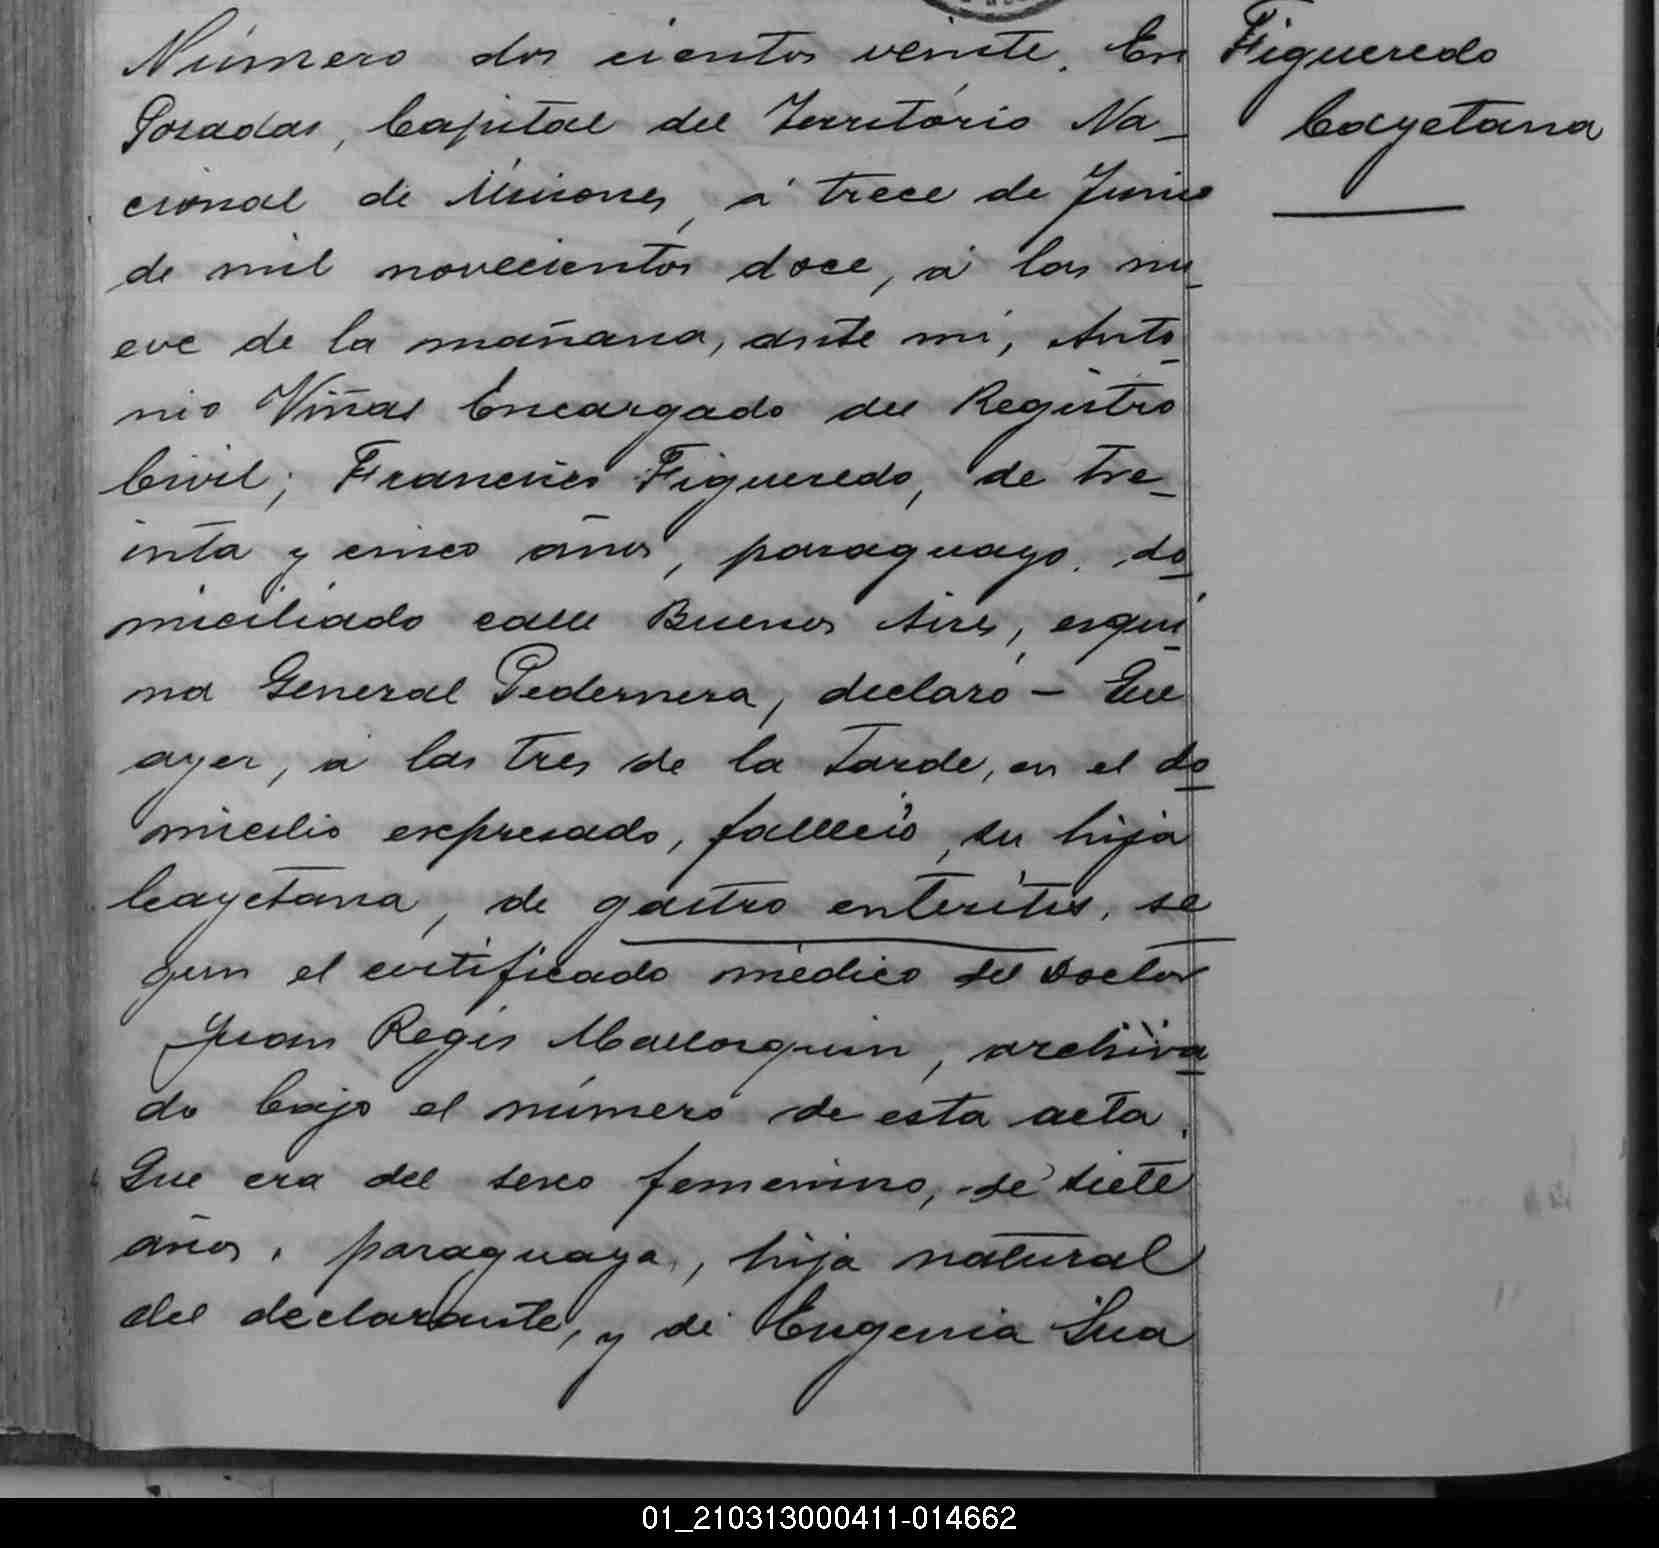 Número dos cientos veinte. En
Posadas, Capital del Territorio Na_
cional de Misiones, á trece de Junio
de mil novecientos doce, á las nu_
eve de la mañana, ante mi, Anto_
nio Viñas Encargado del Registro
Civil; Francisco Figueredo, de tre_
inta y cinco años, paraguayo, do_
miciliado calle Buenos Aires, esqui_
na General Pedernera, declaró - Que
ayer, á las tres de la tarde, en el do_
micilio expresado, falleció, su hija
Cayetana, de gastro enteritis, se_
gun el certificado médico del Doctor
Juan Regis Mallorquin, archiva_
do bajo el número de esta acta.
Que era del sexo femenino, de siete
años, paraguaya, hija natural
del declarante, y de Eugenia Sua
Figueredo
Cayetana
01_210313000411-014662